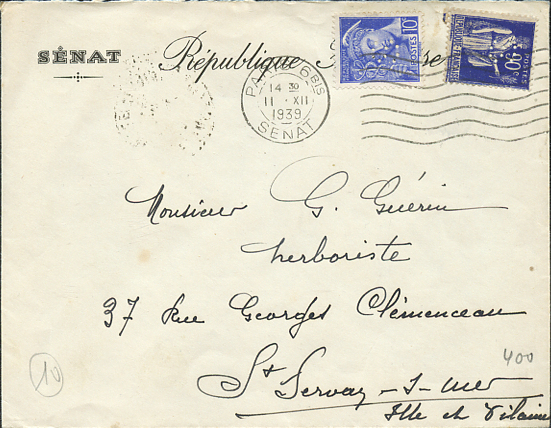 SÉNAT
République
se
10
POSTES
RÉPUBLIQUE FRANÇAISE
90
POSTES
PARIS 6BIS
14 30
11 · XII
1939
SENAT
Monsieur G. Guérin
herboriste
37 Rue Georges Clémenceau
400
St Servan-s-mer
Ille et Vilaine
10